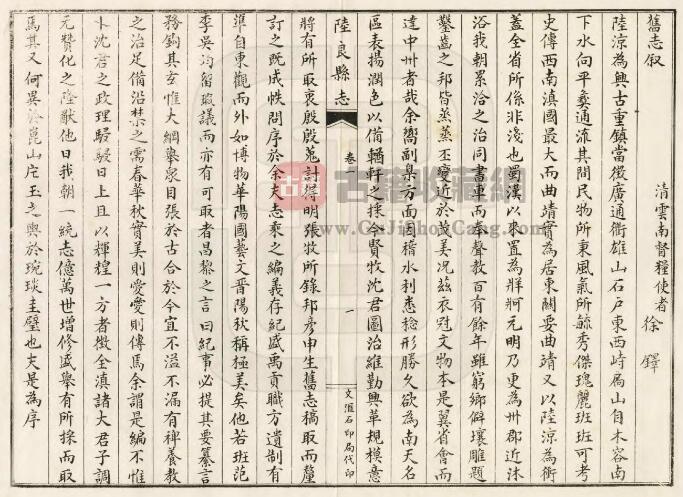 舊志叙
清雲南督糧使者徐鐸
陸涼為興古重鎮當徵廣通衝雄山石戶東西峙焉山自木容南
下水向平彝通流其間民物所東風氣所毓秀傑瑰麗班班可考
史傳西南滇國最大而曲靖實為居東關要曲靖又以陸涼為衝
蓋全省所係非淺也蜀漢以來置為牂牁元明乃更為州郡近沐
浴我朝累洽之治同書車而奉聲教百有餘年雖窮鄉僻壤雕題
鑿齒之邦皆烝烝丕變近於茂美况兹衣冠文物本是翼省會而
達中州者哉余嚮副臬方面因稽水利悉稔形勝久欲為南天名
區表揚潤色以備輶軒之採今賢牧沈君圖治維勤興革規模意
陸良縣志
卷一
一
文滙石印局代印
將有所取衷殷殷蒐討得明張牧所錄邦彦申生舊志稿取而釐
訂之既成帙問序於余夫志乘之編義存紀盛禹貢職方遺制有
準自東觀而外如博物華陽國藝文晋陽秋稱極美矣他若班范
季吳均留瑕議而亦有可取者昌黎之言曰紀事必提其要纂言
務鉤其玄惟大綱舉衆目張於古合於今宜不溢不漏有裨養教
之治足備沿禁之需春華秋實美則愛愛則傳焉余謂是編不惟
卜沈君之政理駸駸日上且以輝煌一方者徵全滇諸大君子調
元贊化之隆猷他日我朝一統志億萬世增修盛舉有所採而取
焉其又何異於崑山片玉之與於琬琰圭璧也夫是為序
古籍收藏網
www.GuJiShouCang.com